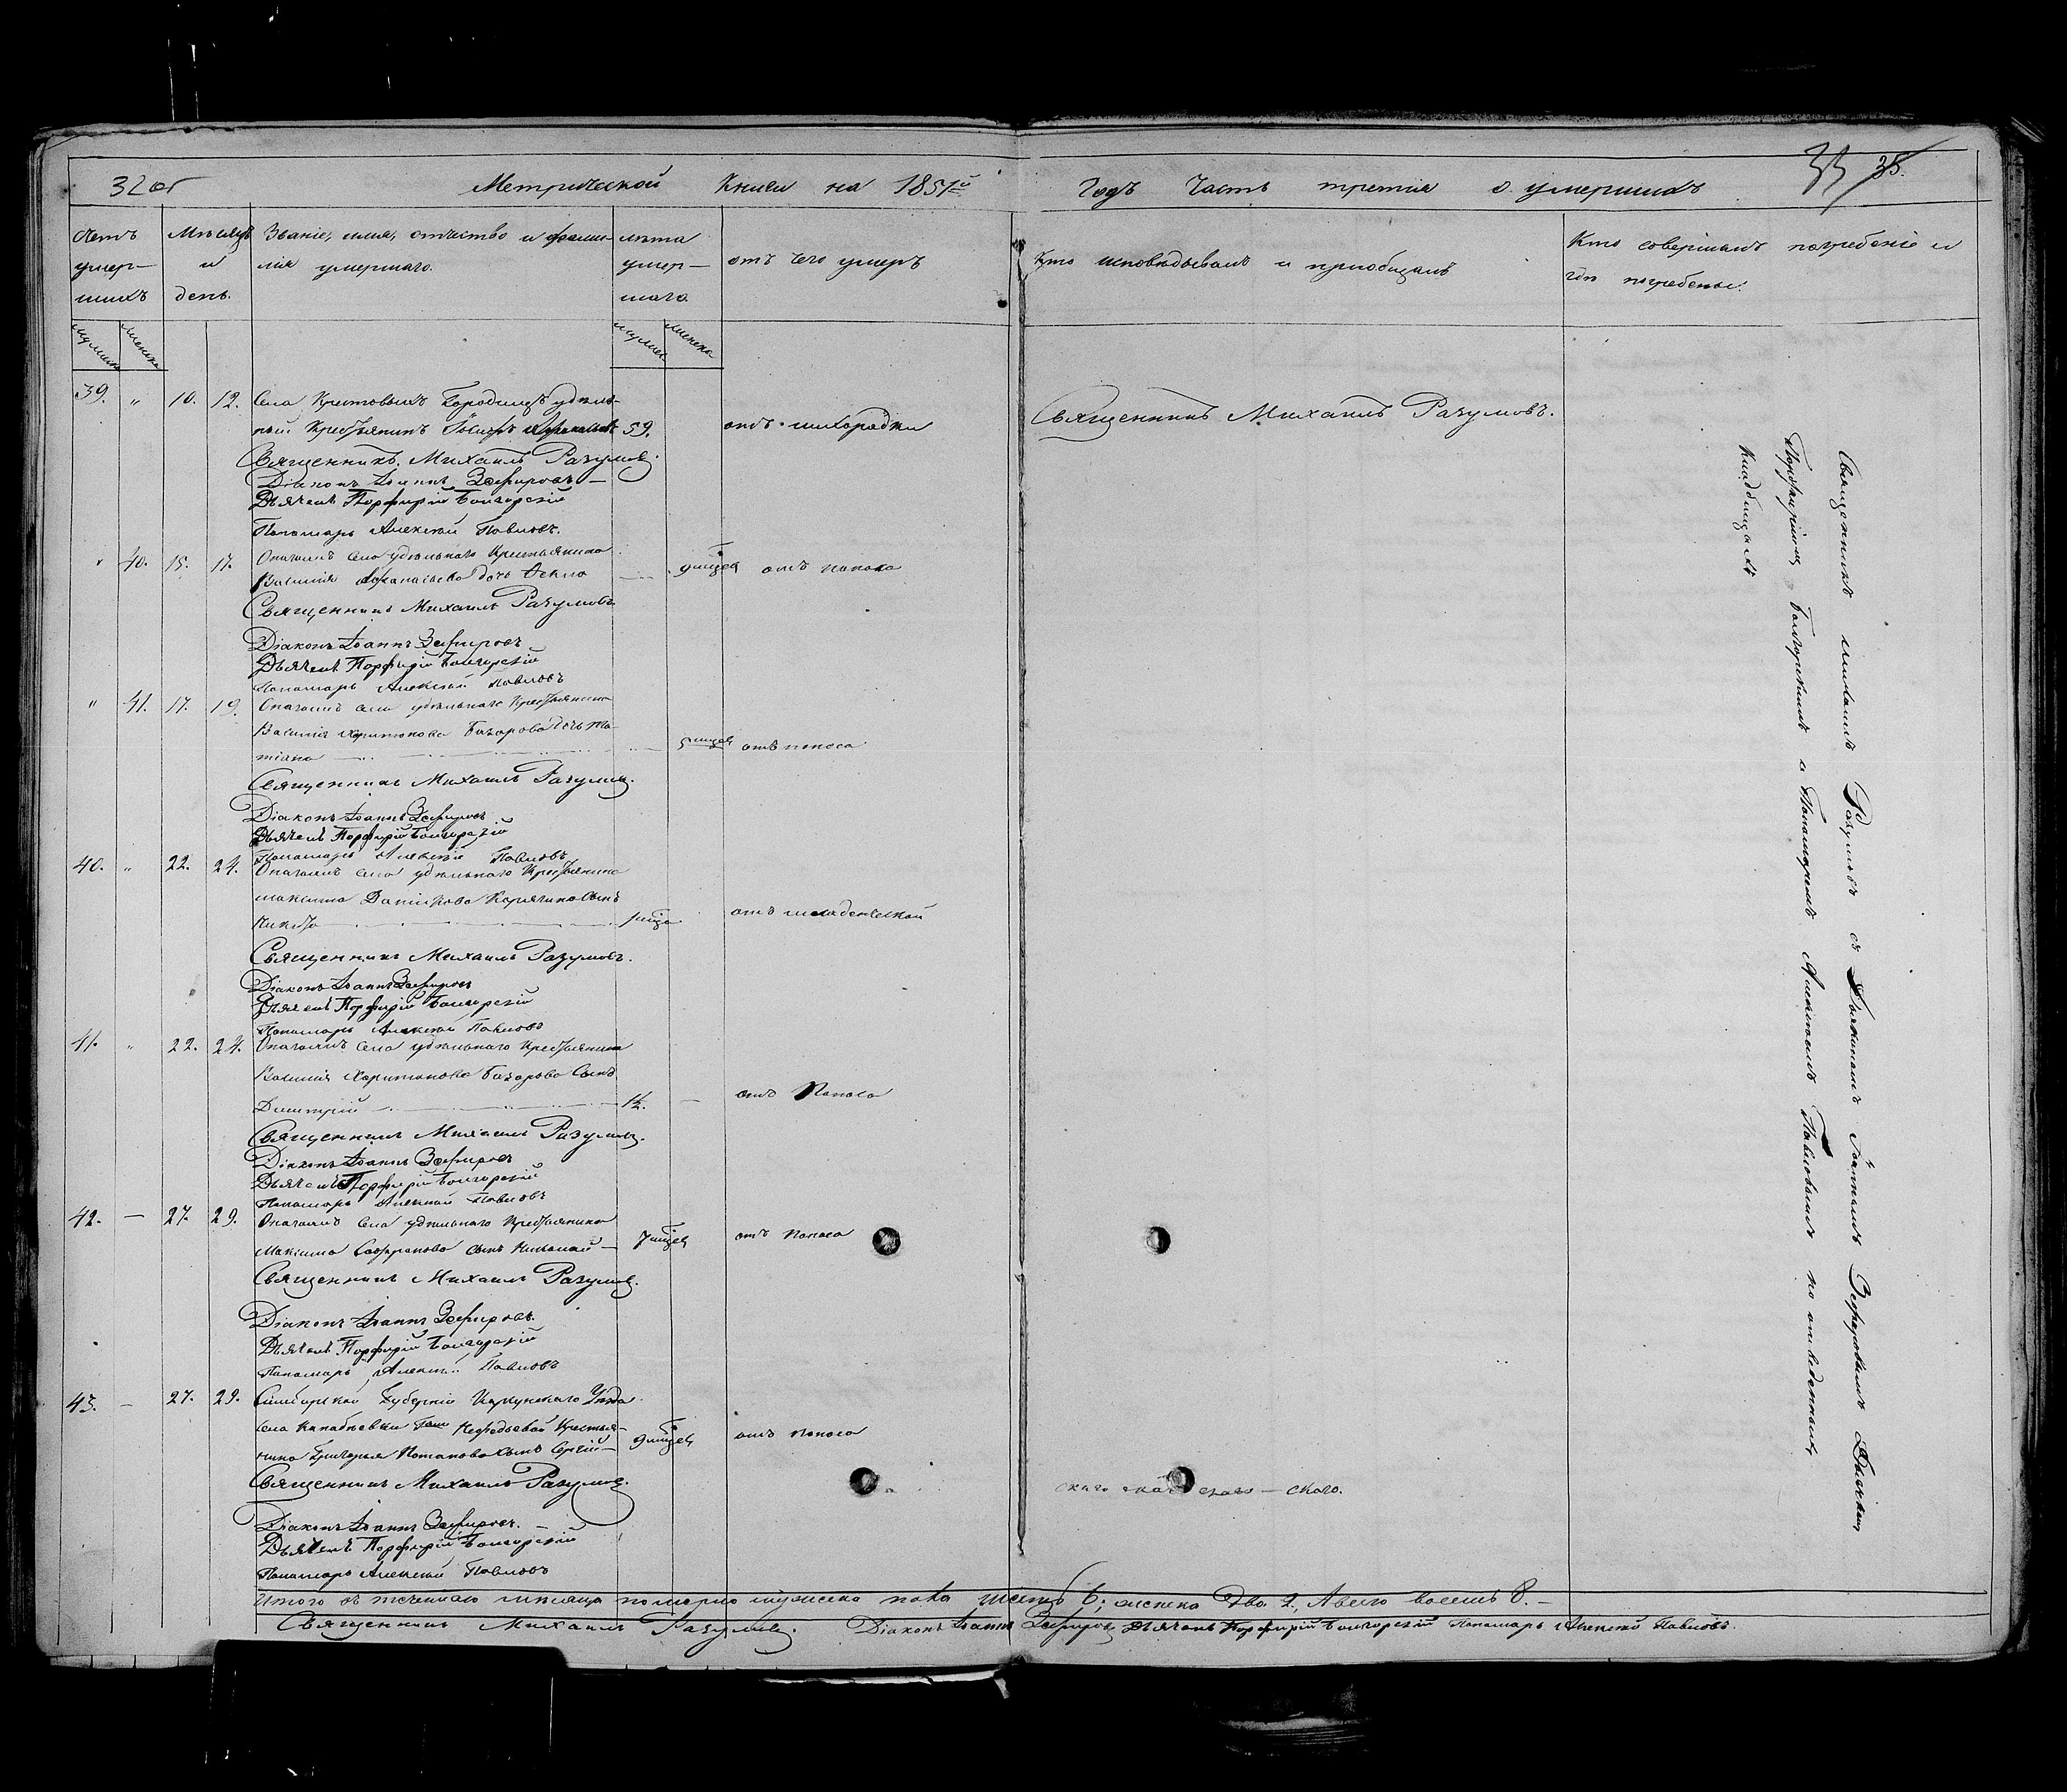 32 об
Метрической Книги на 1851й
Годъ Часть третія о умершихъ
33 35.
Счетъ умер-
шихъ
Мѣсяцъ и
день.
Званіе, имя, отчество и фами-
лія умершаго.
лѣта
умер-
шаго
отъ чего умеръ
Кто исповѣдывалъ и пріобщалъ
Кто совершалъ погребеніе и
гдѣ погребены.
39. " 10. 12. Села Крестовыхъ Городищъ удѣль-
ный Крестьянинъ 59. отъ лихорадки
Священникъ Михаилъ Разумовъ.
Священникъ Михаилъ Разумовъ.
Діаконъ Іоаннъ Зефировъ
Дьячекъ Порфирій Болгорскій
Пономарь Алексѣй Павловъ.
" 40. 15. 17. Опагожъ села удѣльнаго Крестьянина
Василия Афанасьева дочь Фекла 9 мцей отъ поноса
Священникъ Михаилъ Разумовъ
Діаконъ Іоаннъ Зефировъ
Дьячекъ Порфирій Болгорскій
Пономарь Алексѣй Павловъ
" 41. 17. 19. села удѣльнаго Крестьянина
Василия Харитонова Базарова дочь Та-
тіана 5 мцей отъ поноса
Священникъ Михаилъ Разумовъ.
Діаконъ Іоаннъ Зефировъ
Дьячекъ Порфирій Болгорскій
Пономарь Алексѣй Павловъ
40. " 22. 24. села удѣльнаго Крестьянина
Максима Данилова Карягина сынъ
Никита 1 мца отъ младенческой
Священникъ Михаилъ Разумовъ.
Діаконъ Іоаннъ Зефировъ
Дьячекъ Порфирій Болгорскій
Пономарь Алексѣй Павловъ
41. " 22. 24. села удѣльнаго Крестьянина
Василия Харитонова Базарова сынъ
Димитрій 1½. отъ поноса
Священникъ Михаилъ Разумовъ.
Діаконъ Іоаннъ Зефировъ
Дьячекъ Порфирій Болгорскій
Пономарь Алексѣй Павловъ
42. — 27. 29. села удѣльнаго Крестьянина
Максима Софронова сынъ Николай 7 мцей отъ поноса
Священникъ Михаилъ Разумовъ.
Діаконъ Іоаннъ Зефировъ.
Дьячекъ Порфирій Болгорскій
Пономарь Алексѣй Павловъ
43. — 27. 29. Симбирской Губерніи Карсунскаго Уѣзда
села Крестья-
нина Григорья Потапова сынъ Сергій 9 мцей отъ поноса
Священникъ Михаилъ Разумовъ.
Діаконъ Іоаннъ Зефировъ.
Дьячекъ Порфирій Болгорскій
Пономарь Алексѣй Павловъ
Священникъ Михаилъ Разумовъ съ Діакономъ Іоанномъ Зефировымъ Дьячкомъ
Порфиріемъ Болгорскимъ и Пономаремъ Алексѣемъ Павловымъ на отведенномъ
Кладбищѣ
скаго.
Итого въ теченіи мѣсяца померло мужеска пола шесть 6; женска два 2, А всего восемь 8.
Священникъ Михаилъ Разумовъ. Діаконъ Іоаннъ Зефировъ Дьячекъ Порфирій Болгорскій Пономарь Алексѣй Павловъ.